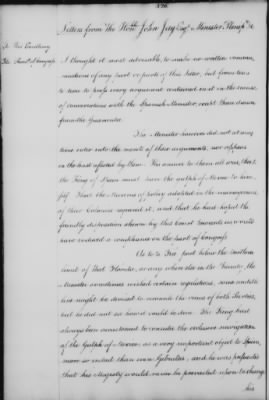 376.
Letters from The Honble John Jay Esqr Minister Plenipo: &c
To His Excellency
The Presidt of Congress
I thought it most adviseable, to make no written commu-
nications of any hint or parts of this letter, but from time
to time to press every argument contained in it in the course
of conversations with the Spanish Minister, except those drawn
from the Guarantee.
His Minister however did not at any
time enter into the merits of these arguments, nor appear
in the least affected by them. His answer to them all was, that
the King of Spain must have the gulph of Mexico to him-
self. That the Maxims of policy adopted in the management
of their Colonies required it, and that he had hoped the
friendly disposition shewn by this Court towards us would
have induced a compliance on the part of Congress.
As to a free port below the Southern
limit of West Florida, or any where else in the Vicinity, the
Minister sometimes wished certain regulations, some middle
line might be devised to reconcile the views of both parties,
but he did not see how it could be done. The King had
always been accustomed to consider the exclusive navigation
of the Gulph of Mexico as a very important object to Spain,
more so indeed than even Gibralter, and he was persuaded
that his Majesty would never be prevailed upon to change
his